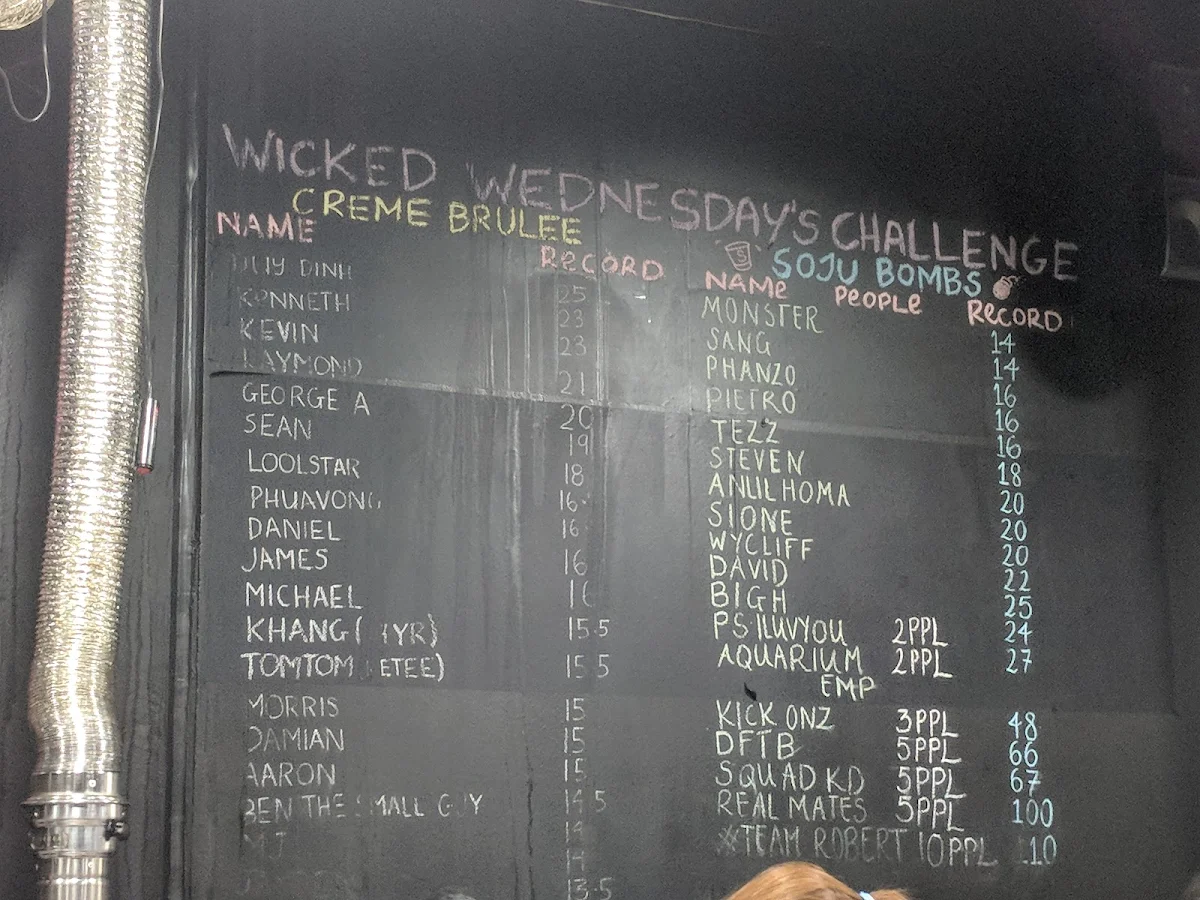 WICKED WEDNESDAY'S CHALLENGE
CREME BRULEE
NAME RECORD
DINH 25
KENNETH 23
KEVIN 23
RAYMOND 21
GEORGE A 20
SEAN 19
LOOLSTAR 18
PHUAVONG 16
DANIEL 16
JAMES 16
MICHAEL 16
KHANG 15.5
TOMTOM 15.5
MORRIS 15
DAMIAN 15
AARON 15
BEN THE SMALL GUY 14.5
MJ 14
14
13.5
SOJU BOMBS
NAME PEOPLE RECORD
MONSTER 14
SANG 14
PHANZO 16
PIETRO 16
TEZZ 16
STEVEN 18
ANLILHOMA 20
SIONE 20
WYCLIFF 20
DAVID 22
BIGH 25
PS ILUVYOU 2PPL 24
AQUARIUM 2PPL 27
EMP
KICK ONZ 3PPL 48
DFTB 5PPL 66
SQUAD KD 5PPL 67
REAL MATES 5PPL 100
#TEAM ROBERT 10PPL 110